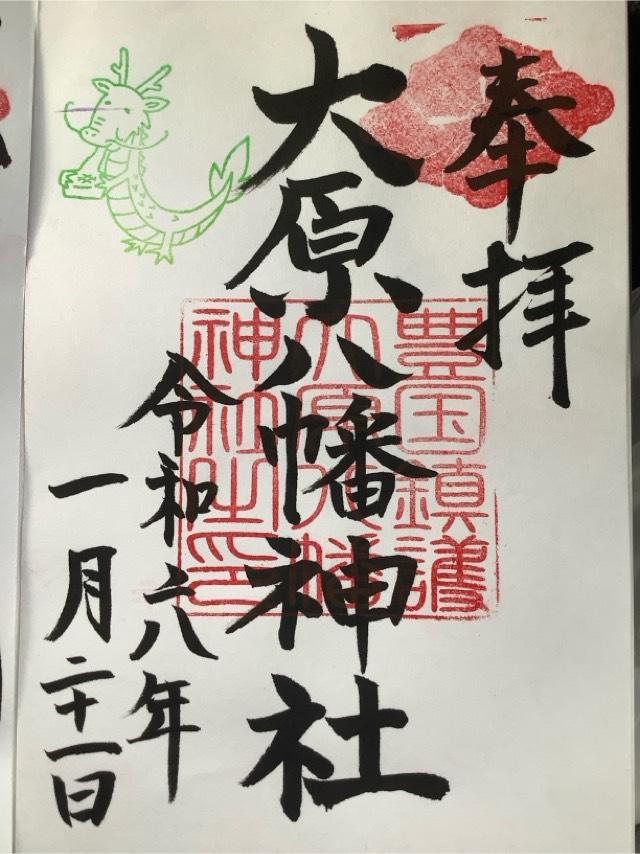 奉拝
豊国鎮護
大原八幡
神社之印
大原八幡神社
令和六年
一月二十一日